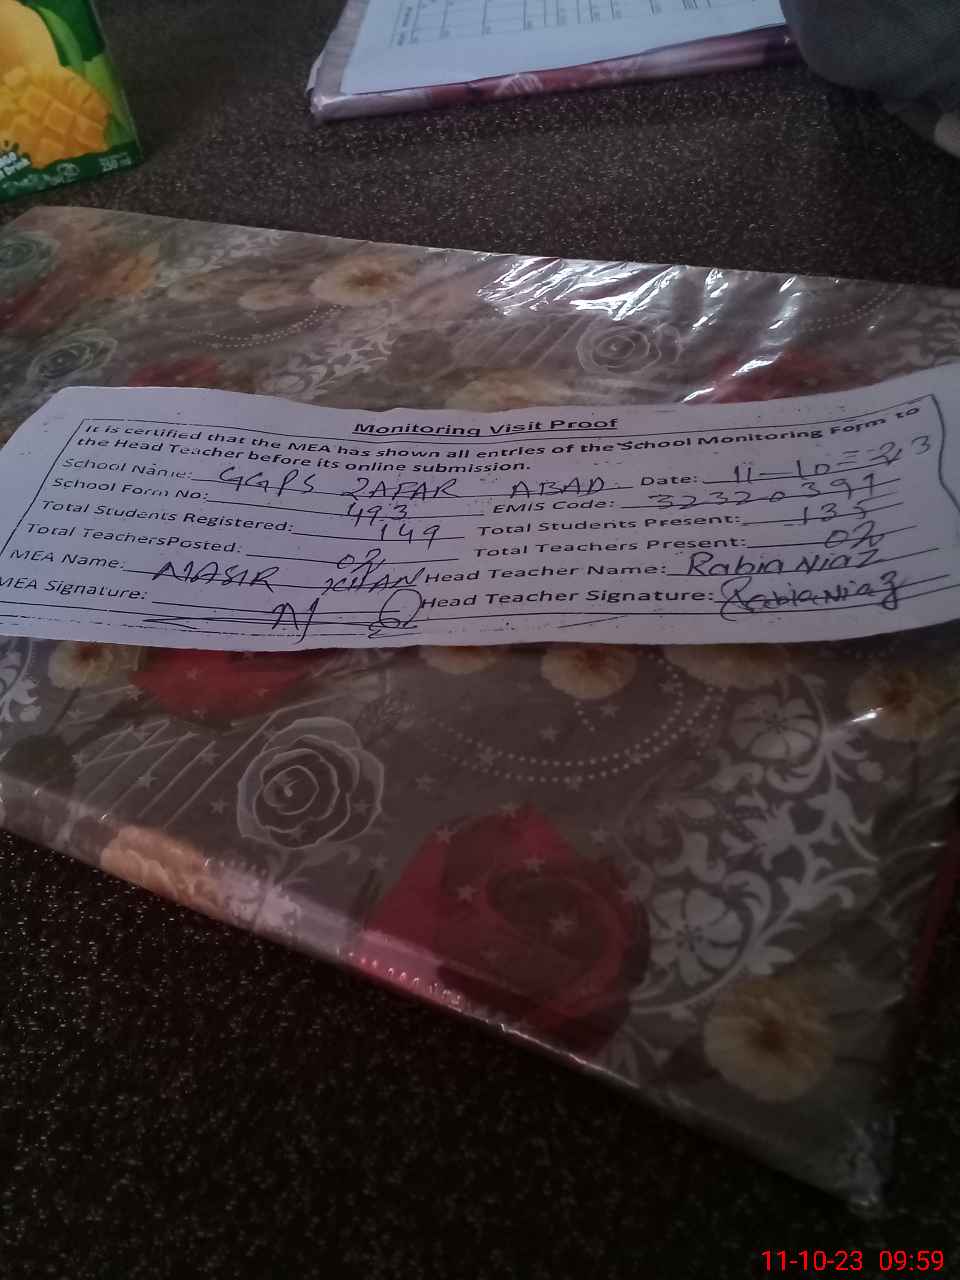 250 ml
Monitoring Visit Proof
It is certified that the MEA has shown all entries of the School Monitoring Form to
the Head Teacher before its online submission.
School Name: GGPS ZAFAR ABAD Date: 11-10-23
School Form No: 493 EMIS Code: 32320397
Total Students Registered: 149 Total Students Present: 135
Total TeachersPosted: 02 Total Teachers Present: 02
MEA Name: NASIR KHAN Head Teacher Name: Rabia Niaz
MEA Signature: Head Teacher Signature: Rabia Niaz
11-10-23 09:59